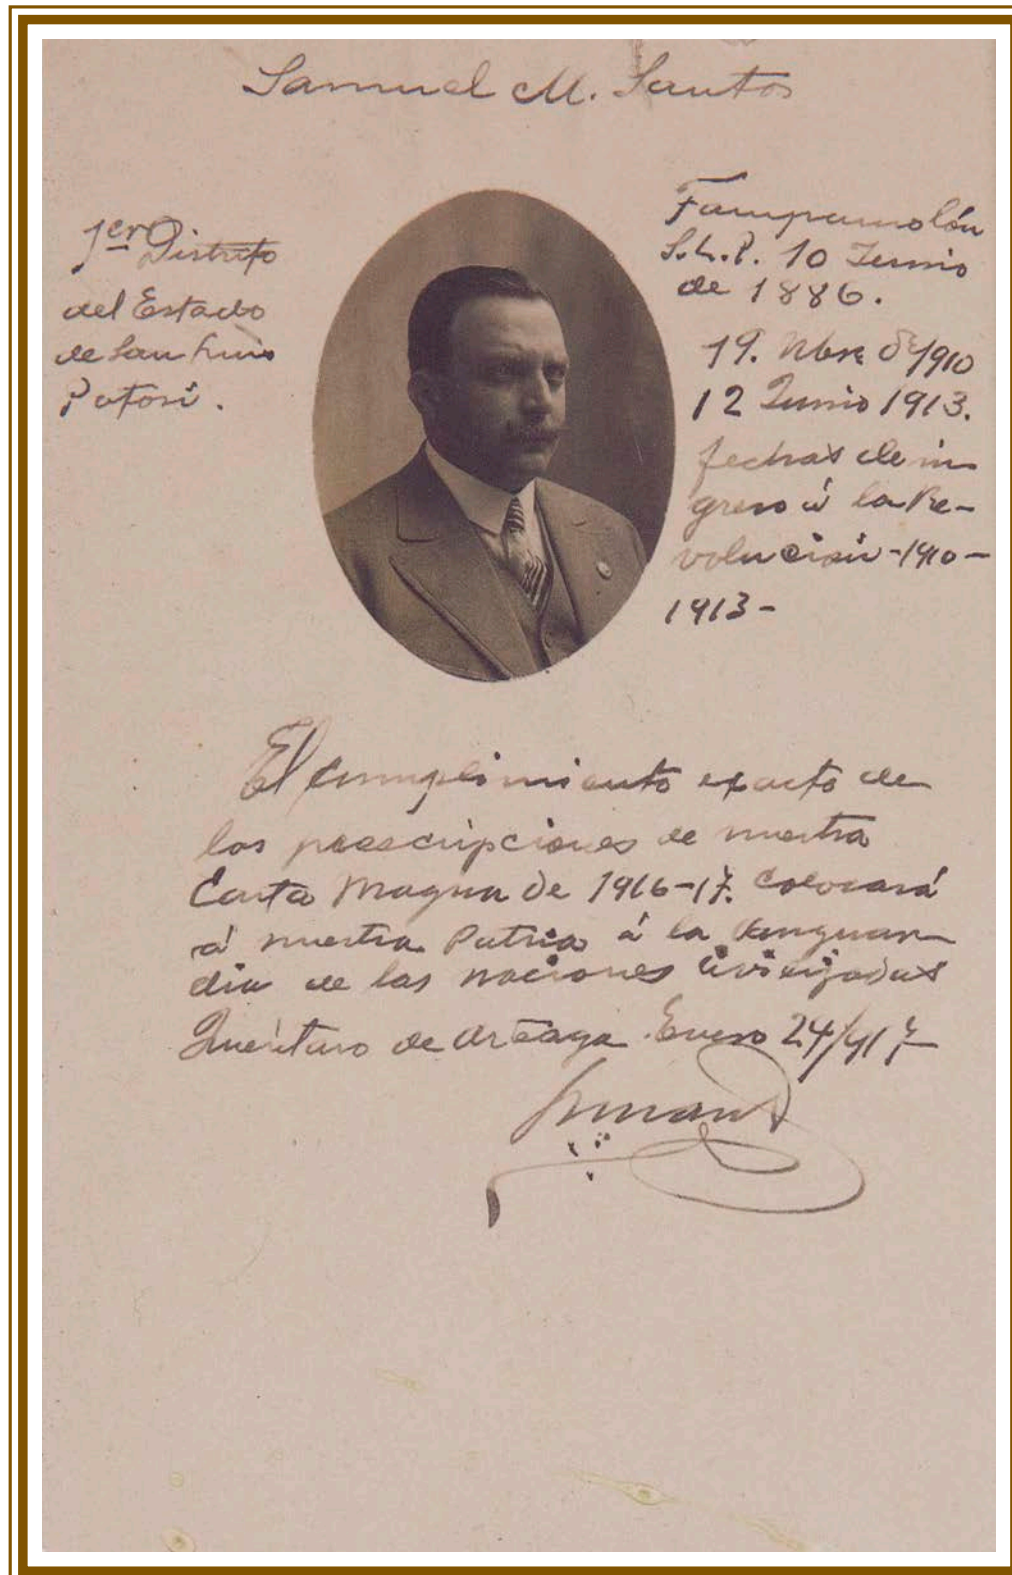 Samuel M. Santos
1er Distrito
del Estado
de San Luis
Potosí.
Tampamolón
S.L.P. 10 Junio
de 1886.
19. Nbre de 1910
12 Junio 1913.
fechas de in
greso á la Re-
volucion -1910-
1913-
El cumplimiento exacto de
las prescripciones de nuestra
Carta Magna de 1916-17. colocará
á nuestra Patria á la vanguar
dia de las naciones civilizadas
Querétaro de Arteaga Enero 24/917